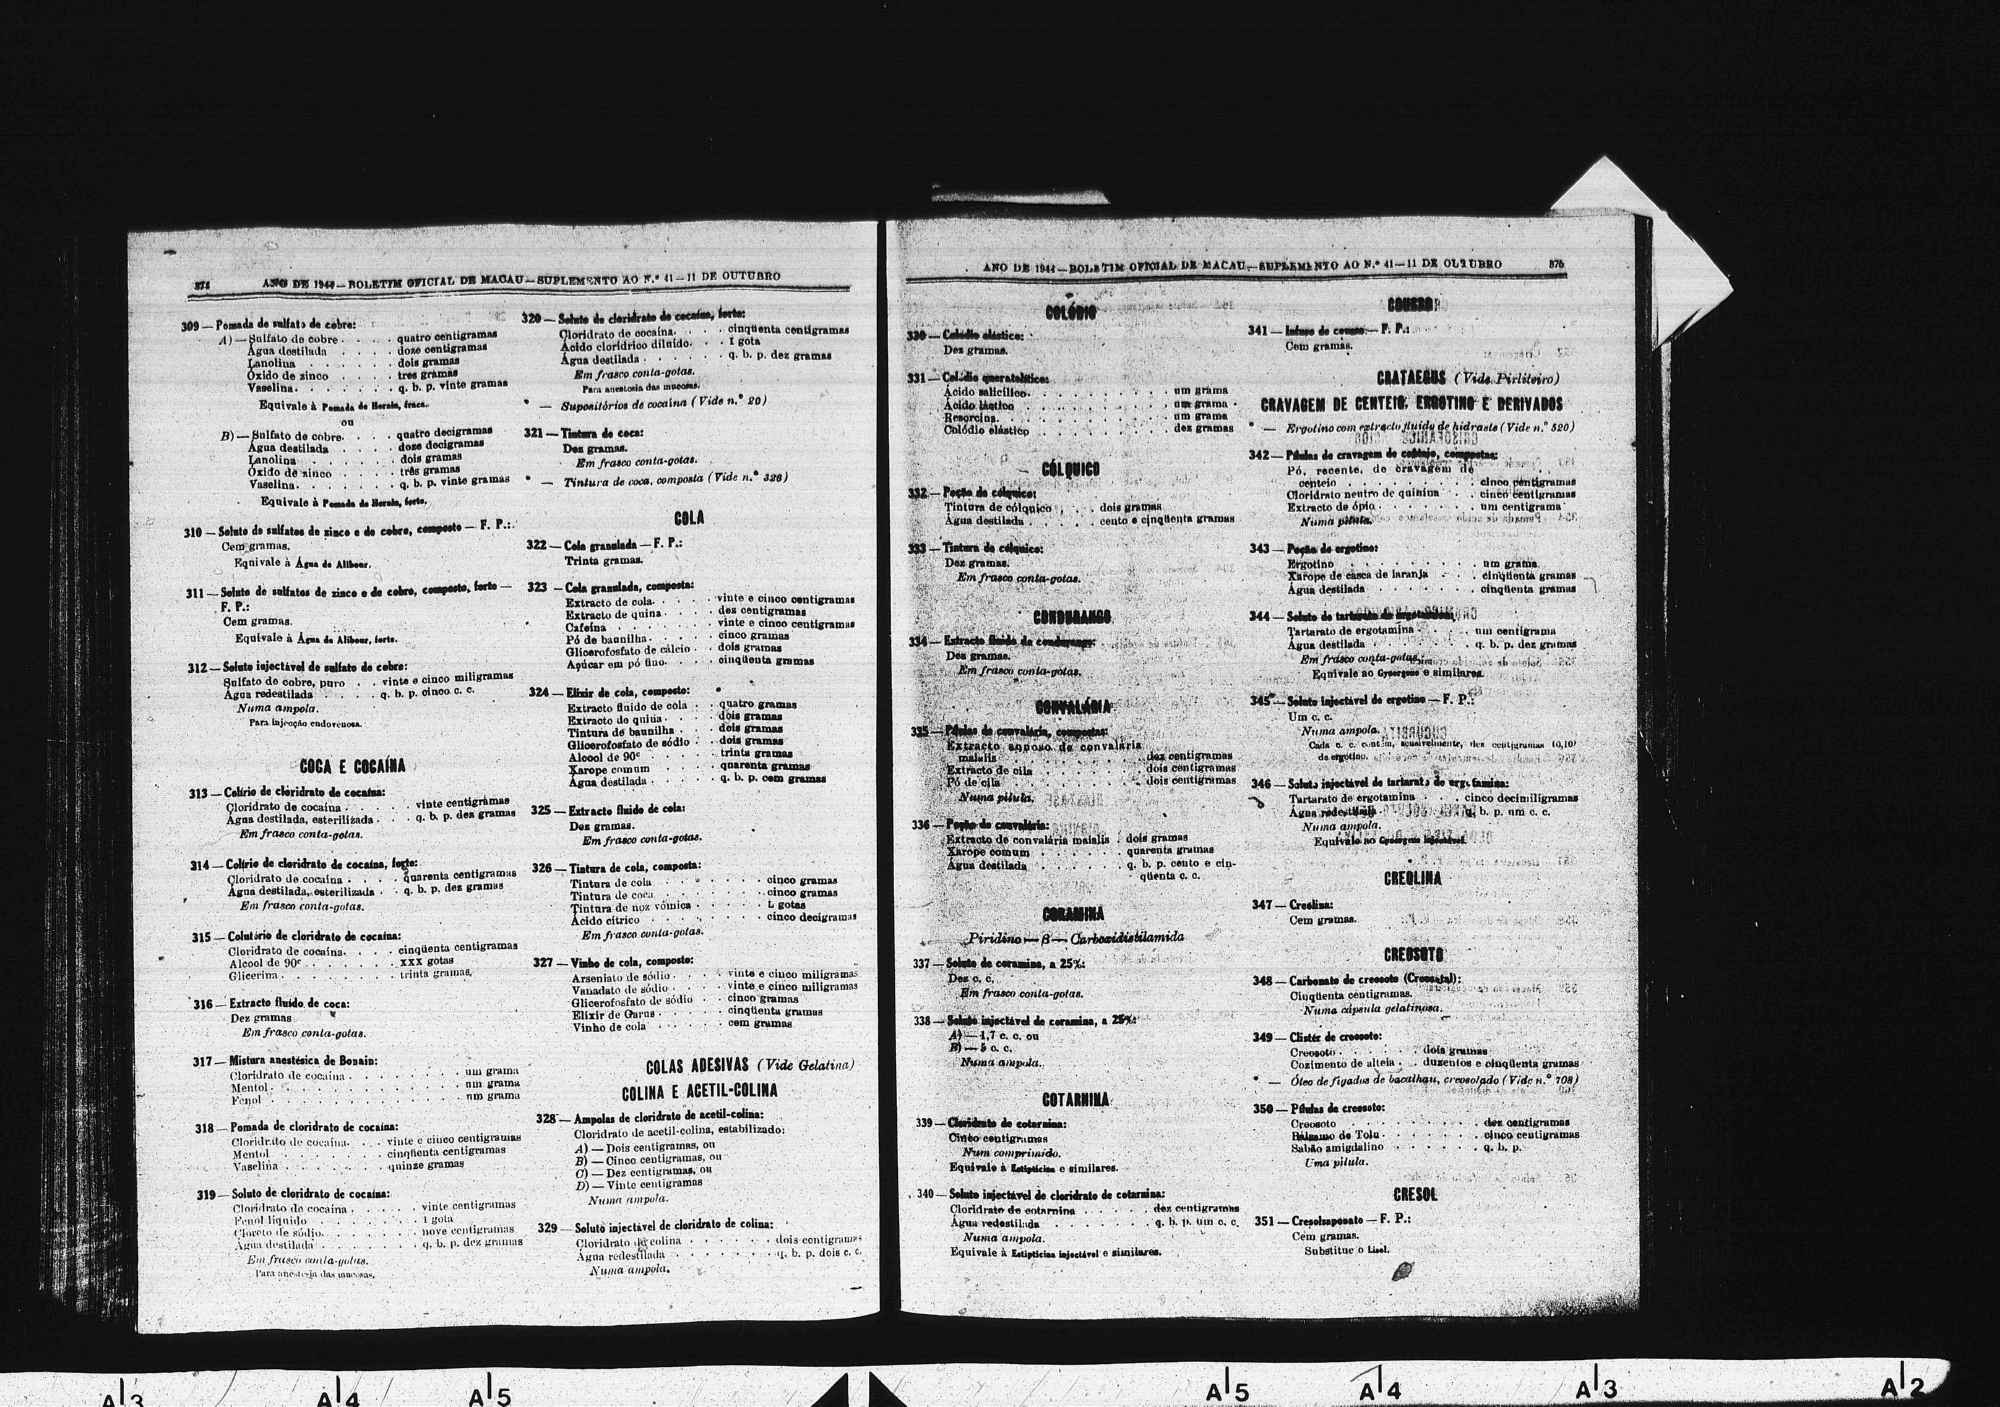 874 ANO DE 1944—BOLETIM OFICIAL DE MACAU—SUPLEMENTO AO N.º 41—11 DE OUTUBRO
309 — Pomada de sulfato de cobre:
A) — Sulfato de cobre . . . . quatro centigramas
Água destilada . . . . doze centigramas
Lanolina . . . . . . dois gramas
Óxido de zinco . . . . três gramas
Vaselina. . . . . . . q. b. p. vinte gramas
Equivale à Pomada de Herain, fraca.
ou
B) — Sulfato de cobre. . . . quatro decigramas
Água destilada . . . . doze decigramas
Lanolina . . . . . . dois gramas
Óxido de zinco . . . . três gramas
Vaselina. . . . . . . q. b. p. vinte gramas
Equivale à Pomada de Herain, forte.
310 — Soluto de sulfatos de zinco e de cobre, composto — F. P.:
Cem gramas.
Equivale à Água de Alibour.
311 — Soluto de sulfatos de zinco e de cobre, composto, forte —
F. P.:
Cem gramas.
Equivale à Água de Alibour, forte.
312 — Soluto injectável de sulfato de cobre:
Sulfato de cobre, puro . . vinte e cinco miligramas
Água redestilada . . . . q. b. p. cinco c. c.
Numa ampola.
Para injecção endovenosa.
COCA E COCAÍNA
313 — Colírio de cloridrato de cocaína:
Cloridrato de cocaína . . . . . vinte centigramas
Água destilada, esterilizada . . . q. b. p. dez gramas
Em frasco conta-gotas.
314 — Colírio de cloridrato de cocaína, forte:
Cloridrato de cocaína . . . . quarenta centigramas
Água destilada, esterilizada . . q. b. p. dez gramas
Em frasco conta-gotas.
315 — Colutório de cloridrato de cocaína:
Cloridrato de cocaína. . . . cinqüenta centigramas
Alcool de 90º . . . . . . XXX gotas
Glicerina . . . . . . . trinta gramas.
316 — Extracto fluido de coca:
Dez gramas
Em frasco conta-gotas.
317 — Mistura anestésica de Bonain:
Cloridrato de cocaína . . . . . . . um grama
Mentol . . . . . . . . . . . um grama
Fenol . . . . . . . . . . . um grama
318 — Pomada de cloridrato de cocaína:
Cloridrato de cocaína. . . . vinte e cinco centigramas
Mentol . . . . . . . cinqüenta centigramas
Vaselina . . . . . . . quinze gramas
319 — Soluto de cloridrato de cocaína:
Cloridrato de cocaína . . . . . vinte centigramas
Fenol líquido . . . . . . . 1 gota
Cloreto de sódio. . . . . . . nove centigramas
Água destilada . . . . . . . q. b. p. dez gramas
Em frasco conta-gotas.
Para anestesia das mucosas.
320 — Soluto de cloridrato de cocaína, forte:
Cloridrato de cocaína. . . . cinqüenta centigramas
Ácido clorídrico diluído. . . 1 gota
Água destilada . . . . . q. b. p. dez gramas
Em frasco conta-gotas.
Para anestesia das mucosas.
* — Supositórios de cocaína (Vide n.º 20)
321 — Tintura de coca:
Dez gramas.
Em frasco conta-gotas.
* — Tintura de coca, composta (Vide n.º 326)
COLA
322 — Cola granulada — F. P.:
Trinta gramas.
323 — Cola granulada, composta:
Extracto de cola. . . . . vinte e cinco centigramas
Extracto de quina . . . . dez centigramas
Cafeína . . . . . . vinte e cinco centigramas
Pó de baunilha. . . . . cinco gramas
Glicerofosfato de cálcio . . dois gramas
Açúcar em pó fino. . . . cinqüenta gramas
324 — Elixir de cola, composto:
Extracto fluido de cola . . quatro gramas
Extracto de quina . . . . dois gramas
Tintura de baunilha . . . dois gramas
Glicerofosfato de sódio . . dois gramas
Alcool de 90º . . . . . trinta gramas
Xarope comum . . . . quarenta gramas
Água destilada . . . . . q. b. p. cem gramas
325 — Extracto fluido de cola:
Dez gramas.
Em frasco conta-gotas.
326 — Tintura de cola, composta:
Tintura de cola . . . . . . . cinco gramas
Tintura de coca . . . . . . . cinco gramas
Tintura de noz vómica . . . . . L gotas
Ácido cítrico . . . . . . . . cinco decigramas
Em frasco conta-gotas.
327 — Vinho de cola, composto:
Arseniato de sódio . . . . vinte e cinco miligramas
Vanadato de sódio . . . . vinte e cinco miligramas
Glicerofosfato de sódio . . cinco gramas
Elixir de Garus . . . . . cinqüenta gramas
Vinho de cola . . . . . cem gramas
COLAS ADESIVAS (Vide Gelatina)
COLINA E ACETIL-COLINA
328 — Ampolas de cloridrato de acetil-colina:
Cloridrato de acetil-colina, estabilizado:
A) — Dois centigramas, ou
B) — Cinco centigramas, ou
C) — Dez centigramas, ou
D) — Vinte centigramas
Numa ampola.
329 — Soluto injectável de cloridrato de colina:
Cloridrato de colina . . . . . . dois centigramas
Água redestilada . . . . . . . q. b. p. dois c. c.
Numa ampola.
ANO DE 1944—BOLETIM OFICIAL DE MACAU—SUPLEMENTO AO N.º 41—11 DE OUTUBRO 875
COLÓDIO
330 — Colódio elástico:
Dez gramas.
331 — Colódio queratolítico:
Ácido salicílico. . . . . . . . . . um grama
Ácido láctico . . . . . . . . . . um grama
Resorcina. . . . . . . . . . . . um grama
Colódio elástico . . . . . . . . . dez gramas
CÓLQUICO
332 — Poção de cólquico:
Tintura de cólquico . . . dois gramas
Água destilada . . . . . cento e cinqüenta gramas
333 — Tintura de cólquico:
Dez gramas.
Em frasco conta-gotas.
CONDURANGO
334 — Extracto fluido de condurango:
Dez gramas.
Em frasco conta-gotas.
CONVALÁRIA
335 — Pílulas de convalária, compostas:
Extracto aquoso de convalária
maialis . . . . . . . . . dez centigramas
Extracto de cila . . . . . . . dois centigramas
Pó de cila . . . . . . . . . dois centigramas
Numa pílula.
336 — Poção de convalária:
Extracto de convalária maialis . dois gramas
Xarope comum . . . . . . quarenta gramas
Água destilada . . . . . . q. b. p. cento e cin-
qüenta c. c.
CORAMINA
Piridino — β — Carboxidietilamida
337 — Soluto de coramina, a 25%:
Dez c. c.
Em frasco conta-gotas.
338 — Soluto injectável de coramina, a 25%:
A) — 1,7 c. c. ou
B) — 5 c. c.
Numa ampola.
COTARNINA
339 — Cloridrato de cotarnina:
Cinco centigramas
Num comprimido.
Equivale à Estipticina e similares.
340 — Soluto injectável de cloridrato de cotarnina:
Cloridrato de cotarnina . . . . . dez centigramas
Água redestilada . . . . . . . q. b. p. um c. c.
Numa ampola.
Equivale à Estipticina injectável e similares.
COUSSO
341 — Infuso de cousso — F. P.:
Cem gramas.
CRATAEGUS (Vide Pirliteiro)
CRAVAGEM DE CENTEIO, ERGOTINO E DERIVADOS
* — Ergotino com extracto fluido de hidraste (Vide n.º 520)
342 — Pílulas de cravagem de centeio, compostas:
Pó, recente, de cravagem de
centeio . . . . . . . . . cinco centigramas
Cloridrato neutro de quinina . . cinco centigramas
Extracto de ópio . . . . . . um centigrama
Numa pílula.
343 — Poção de ergotino:
Ergotino . . . . . . . . . um grama
Xarope de casca de laranja . . . cinqüenta gramas
Água destilada . . . . . . . cinqüenta gramas
344 — Soluto de tartarato de ergotamina:
Tartarato de ergotamina . . . . um centigrama
Água destilada . . . . . . . q. b. p. dez gramas
Em frasco conta-gotas.
Equivale ao Gynergene e similares.
345 — Soluto injectável de ergotino — F. P.:
Um c. c.
Numa ampola.
Cada c. c. contém, sensivelmente, dez centigramas (0,10)
de ergotino.
346 — Soluto injectável de tartarato de ergotamina:
Tartarato de ergotamina . . . cinco decimiligramas
Água redestilada . . . . . . q. b. p. um c. c.
Numa ampola.
Equivale ao Gynergene injectável.
CREOLINA
347 — Creolina:
Cem gramas.
CREOSOTO
348 — Carbonato de creosoto (Creosotal):
Cinqüenta centigramas.
Numa cápsula gelatinosa.
349 — Clister de creosoto:
Creosoto . . . . . . dois gramas
Cozimento de alteia . . duzentos e cinqüenta gramas
* — Óleo de fígados de bacalhau, creosotado (Vide n.º 708)
350 — Pílulas de creosoto:
Creosoto . . . . . . . . . dez centigramas
Bálsamo de Tolu . . . . . . cinco centigramas
Sabão amigdalino . . . . . . q. b. p.
Uma pílula.
CRESOL
351 — Cresolsaponato — F. P.:
Cem gramas.
Substitue o Lisol.
A3 A4 A5 A5 A4 A3 A2